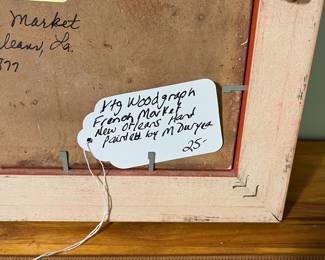 Market
leans, La.
877
Vtg Woodgraph
French Market
New Orleans Hand
Painted by M Duryea
25-